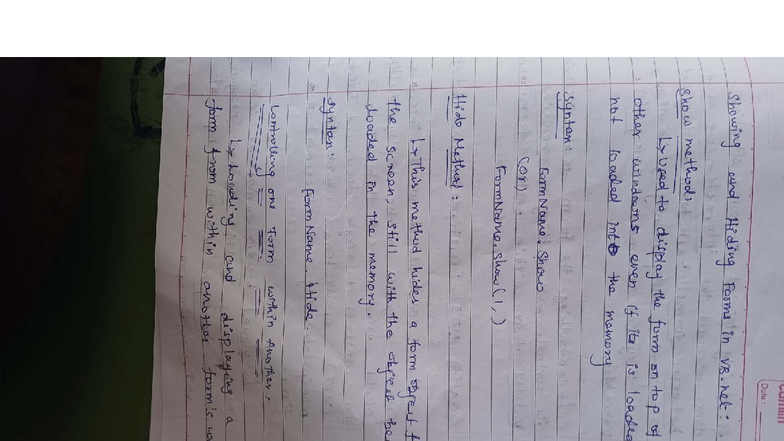 Date:
Showing and Hiding Forms in VB.net:
Show method:
↳ Used to display the form on top of
other windows even if its is loaded
not loaded into the memory
Syntax:
FormName.Show
(or)
FormName.Show(1,)
Hide Method:
↳ This method hides a form object f
the screen, still with the object be
loaded in the memory.
Syntax:
FormName.Hide
Controlling one Form within Another.
↳ Loading and displaying a
form from within another form's